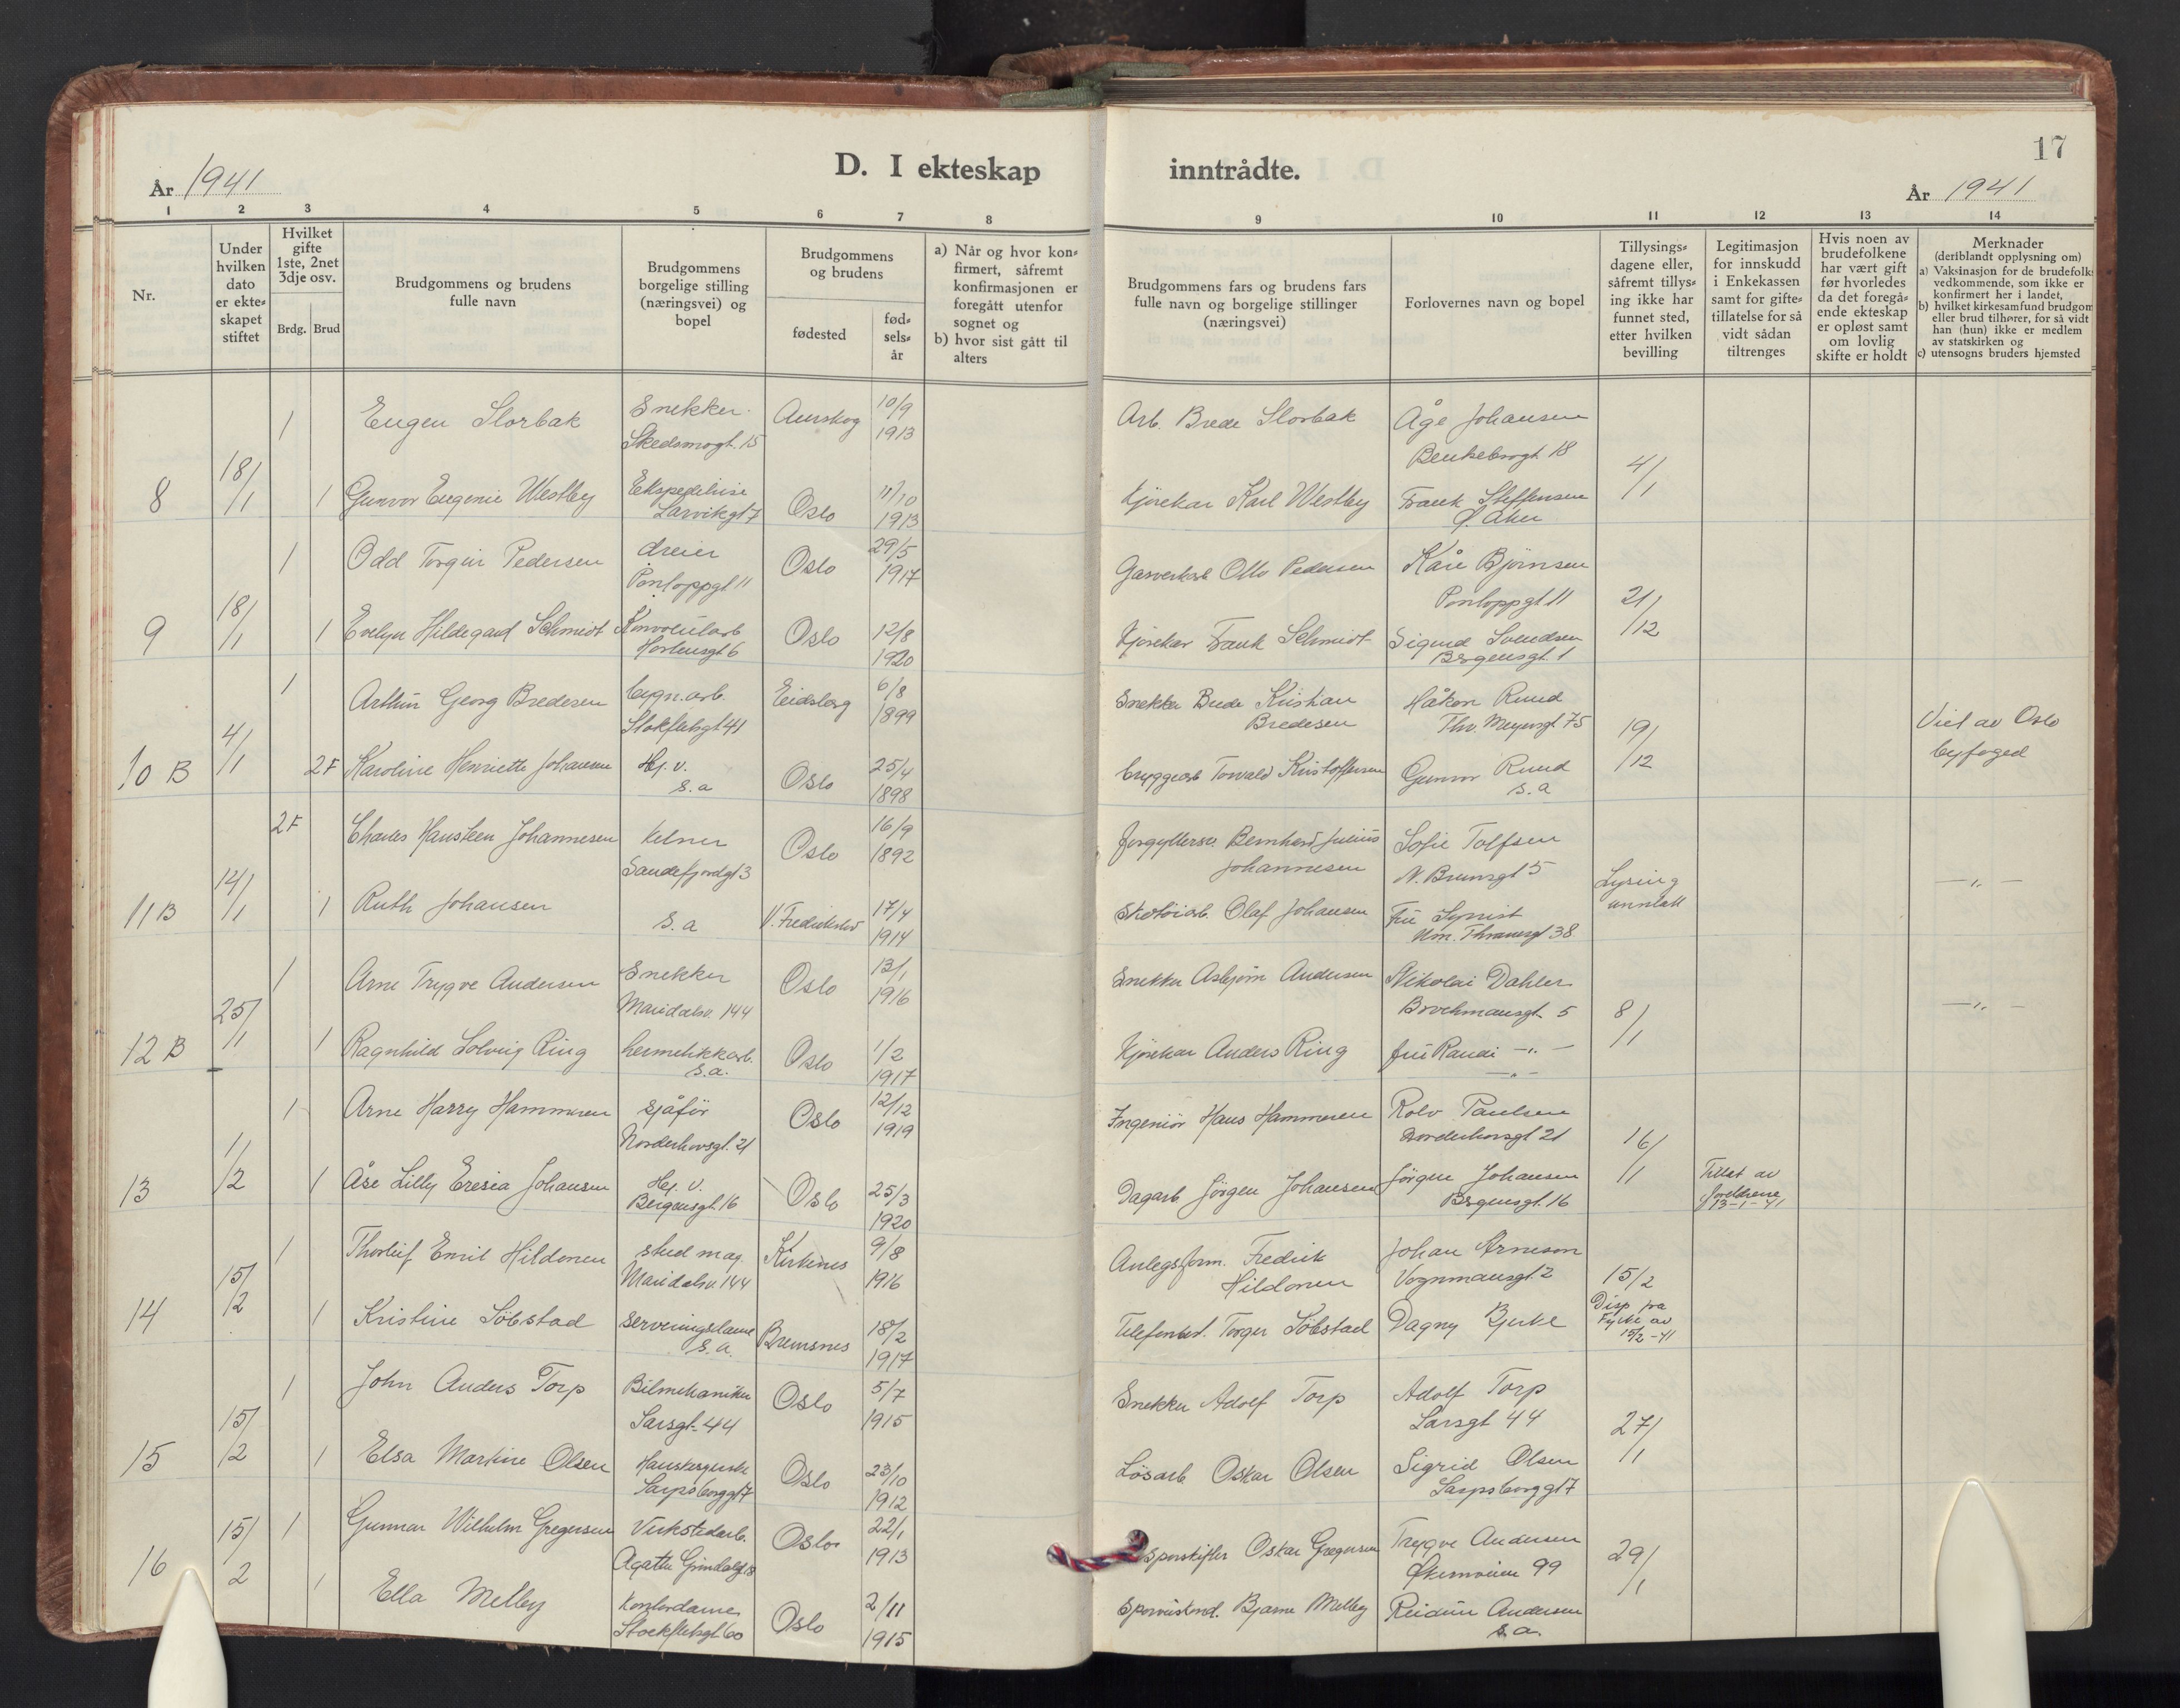 17
D. I ekteskap inntrådte.
År 1941
År 1941
1 2 3 4 5 6 7 8 9 10 11 12 13 14
Nr.
Under
hvilken
dato
er ekte-
skapet
stiftet
Hvilket
gifte
1ste, 2net
3dje osv.
Brdg. Brud
Brudgommens og brudens
fulle navn
Brudgommens
borgelige stilling
(næringsvei) og
bopel
Brudgommens
og brudens
fødested
fød-
sels-
år
a) Når og hvor kon-
firmert, såfremt
konfirmasjonen er
foregått utenfor
sognet og
b) hvor sist gått til
alters
Brudgommens fars og brudens fars
fulle navn og borgelige stillinger
(næringsvei)
Forlovernes navn og bopel
Tillysings-
dagene eller,
såfremt tillys-
ing ikke har
funnet sted,
etter hvilken
bevilling
Legitimasjon
for innskudd
i Enkekassen
samt for gifte-
tillatelse for så
vidt sådan
tiltrenges
Hvis noen av
brudefolkene
har vært gift
før hvorledes
da det foregå-
ende ekteskap
er opløst samt
om lovlig
skifte er holdt
Merknader
(deriblandt opplysning om)
a) Vaksinasjon for de brudefolk
vedkommende, som ikke er
konfirmert her i landet,
b) hvilket kirkesamfund brudgom
eller brud tilhører, for så vidt
han (hun) ikke er medlem
av statskirken og
c) utensogns bruders hjemsted
1 Eugen Storbak Snekker Aurskog 10/9 Arb. Brede Storbak Åge Johansen
Skedsmogt. 15 1913 18
8 18/1 1 Gunvor Eugenie Westby Ekspeditrise Oslo 11/10 Kjørekar Karl Westby Frank Steffensen 4/1
Larvikgt 7 1913 Ø. Aker
1 Odd Torgeir Pedersen dreier Oslo 29/5 Gasverksarb Otto Pedersen Kåre Bjørnsen
Pontoppgt. 11 1917 Pontoppgt 11
9 18/1 1 Evelyn Hildegard Schmidt Konvoluttarb Oslo 12/8 Kjørekar Frank Schmidt Sigurd Svendsen 21/12
Hortensgt 6 1920 Bergensgt. 1
1 Arthur Georg Bredesen bygn.arb. Eidsberg 6/8 Snekker Brede Kristian Håkon Ruud
Stokfletsgt 41 1899 Bredesen Thv. Meyersgt. 75
10 B 4/1 2F Karoline Henriette Johansen Hj. v. Oslo 25/4 bryggearb Torvald Kristoffersen Gunvor Ruud 19/12 Viet av Oslo
s. a 1898 s. a byfoged
2F Charles Hansteen Johannesen kelner Oslo 16/9 Bernhard Julius Sofie Tolfsen
Sandefjordgt 3 1892 Johannesen N. Brunsgt 5
11 B 14/1 1 Ruth Johansen s. a V. Fredrikstad 17/4 Skotøiarb. Olaf Johansen Fru Lysing —„—
1914 Thranesgt 38 unnlatt
1 Arne Trygve Andersen Snekker Oslo 13/1 Snekker Asbjørn Andersen Nikolai Dahler
Maridalsv. 144 1916 Brochmansgt. 5
12 B 25/1 1 Ragnhild Solveig Ring hermetikkarb. Oslo 1/2 Kjørekar Anders Ring fru Randi —„— 8/1 —„—
s.a. 1917 —„—
1 Arne Harry Hammeren sjåfør Oslo 12/12 Ingeniør Hans Hammeren Rolv Paulsen
Norderhovsgt. 21 1919 Norderhovsgt 21
13 1/2 1 Åse Lilly Eresia Johansen Hj. v. Oslo 25/3 Dagarb Jørgen Johansen Jørgen Johansen 16/1 Tillat av
Bergensgt. 16 1920 Bergensgt. 16 foreldrene
13-1-41
1 Thorleif Emil Hildonen stud mag. Kirkenes 9/8 Anlegsform. Fredrik Johan Arneson
Maridalsv. 144 1916 Hildonen Vognmansgt 2
14 15/2 1 Kristine Søbstad serveringsdame Bremsnes 18/2 Torger Søbstad Dagny Bjerke 15/2
s. a. 1917 Disp fra
Fylke av
15/2-41
1 John Anders Torp Bilmekaniker Oslo 5/7 Snekker Adolf Torp Adolf Torp
Sarsgt. 44 1915 Sarsgt 44
15 15/2 1 Elsa Martine Olsen Oslo 23/10 Løsarb Oskar Olsen Sigrid Olsen 27/1
Sarpsborggt 7 1912 Sarpsborggt 7
1 Gunnar Wilhelm Gregersen Verkstedarb. Oslo 22/1 Sporskifter Oskar Gregersen Trygve Andersen
Agathe Grøndalsgt 18 1913 Økernveien 99
16 15/2 1 Ella Melby kontordame Oslo 2/11 Sporveiskond. Bjarne Melby Reidun Andersen 29/1
Stockfletsgt. 60 1915 s. a.